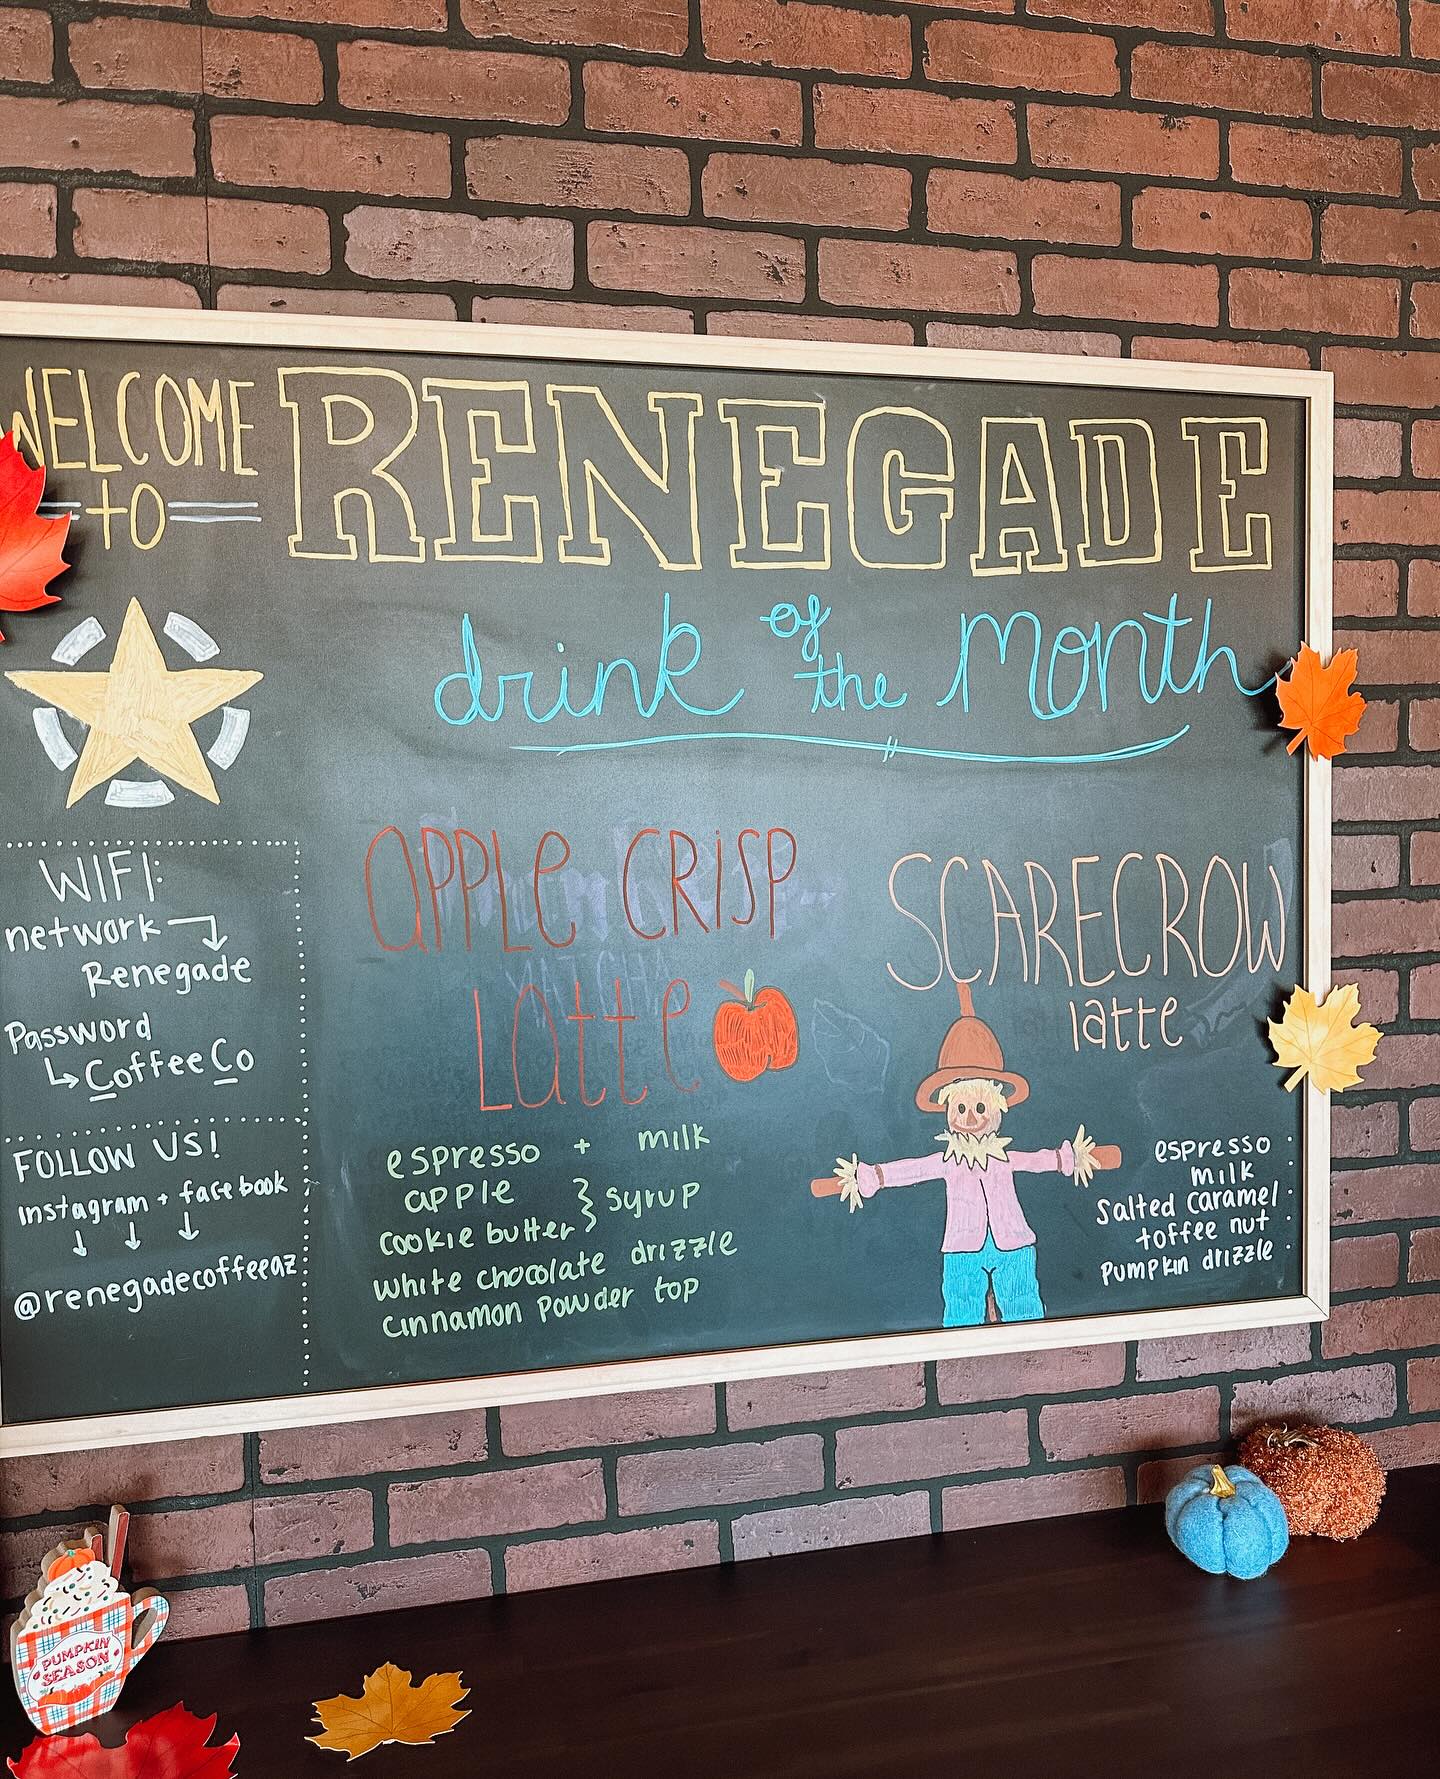 WELCOME
to
RENEGADE
drink of the Month
WIFI:
network
Renegade
Password
CoffeeCo
FOLLOW US!
instagram + facebook
@renegadecoffeeaz
APPLE CRISP
Latte
espresso + milk
apple
cookie butter } syrup
white chocolate drizzle
cinnamon powder top
SCARECROW
latte
espresso
milk
salted caramel
toffee nut
pumpkin drizzle
PUMPKIN
SEASON